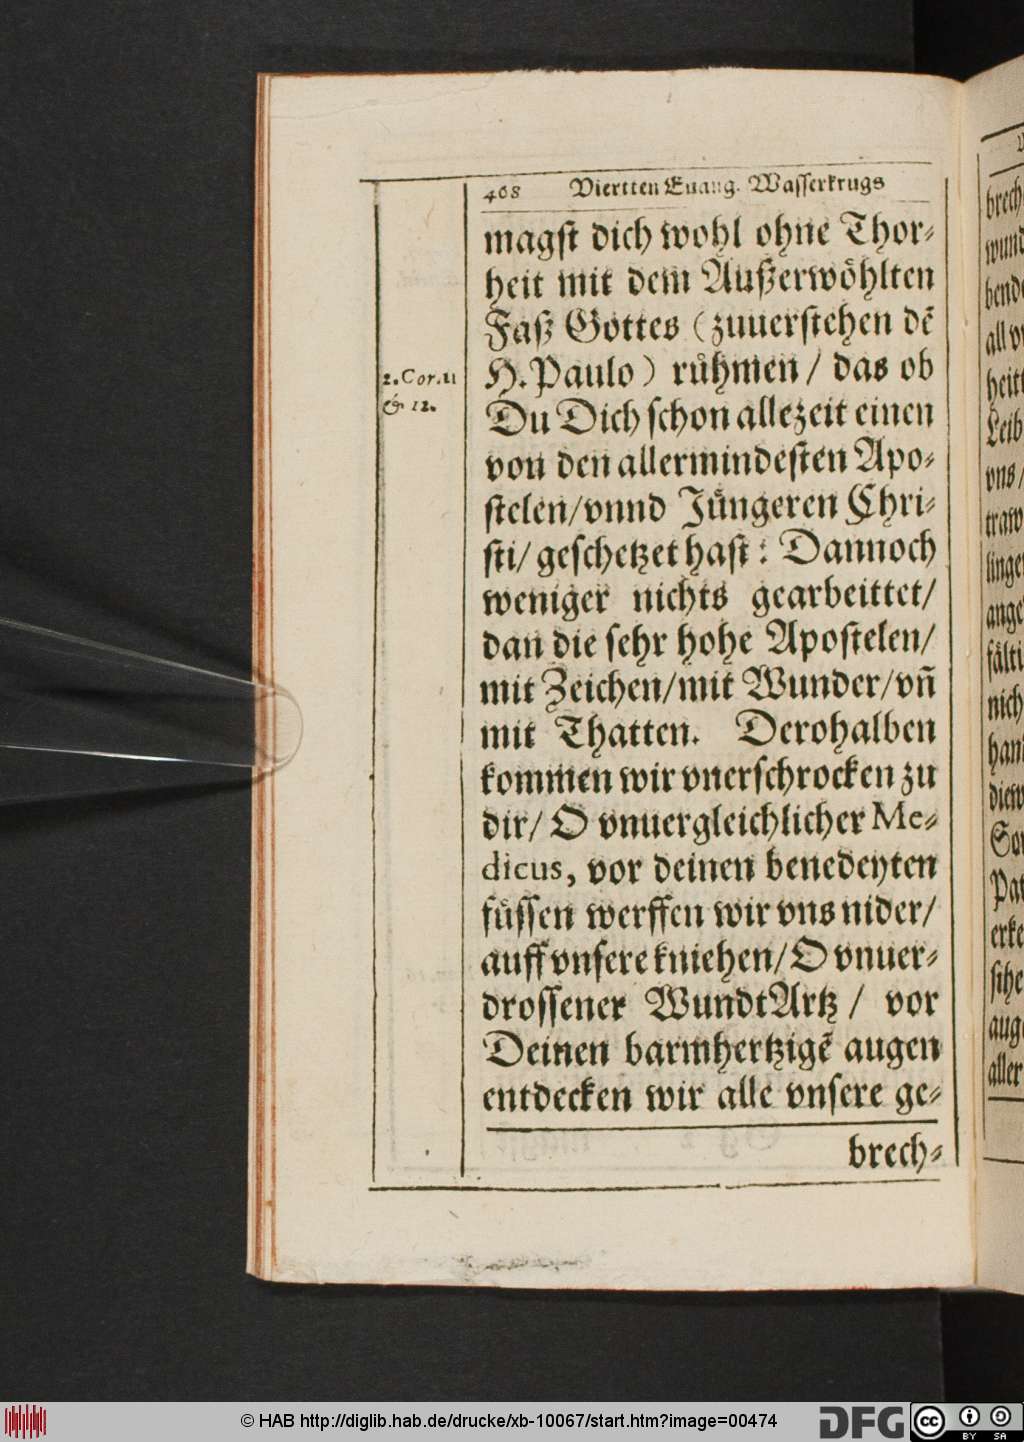 468 Viertten Euang. Wasserkrugs
magst dich wohl ohne Thor⸗
heit mit dem Außerwöhlten
Faß Gottes (zuuerstehen dẽ
H. Paulo) rühmen / das ob
Du Dich schon allezeit einen
von den allermindesten Apo⸗
stelen/vnnd Jüngeren Chri⸗
sti/ geschetzet hast: Dannoch
weniger nichts gearbeittet/
dan die sehr hohe Apostelen/
mit Zeichen/mit Wunder/vñ
mit Thatten. Derohalben
kommen wir vnerschrocken zu
dir/ O vnuergleichlicher Me⸗
dicus, vor deinen benedeyten
füssen werffen wir vns nider/
auff vnsere kniehen/O vnuer⸗
drossener WundtArtz / vor
Deinen barmhertzigẽ augen
entdecken wir alle vnsere ge⸗
brech⸗
2.Cor.11
& 12.
brech
wund
bende
all v
heit
Leib
vns/
traw
linge
ange
fälti
nich
han
diew
Pat
erke
sihe
aug
aller
© HAB http://diglib.hab.de/drucke/xb-10067/start.htm?image=00474
DFG
cc
BY SA